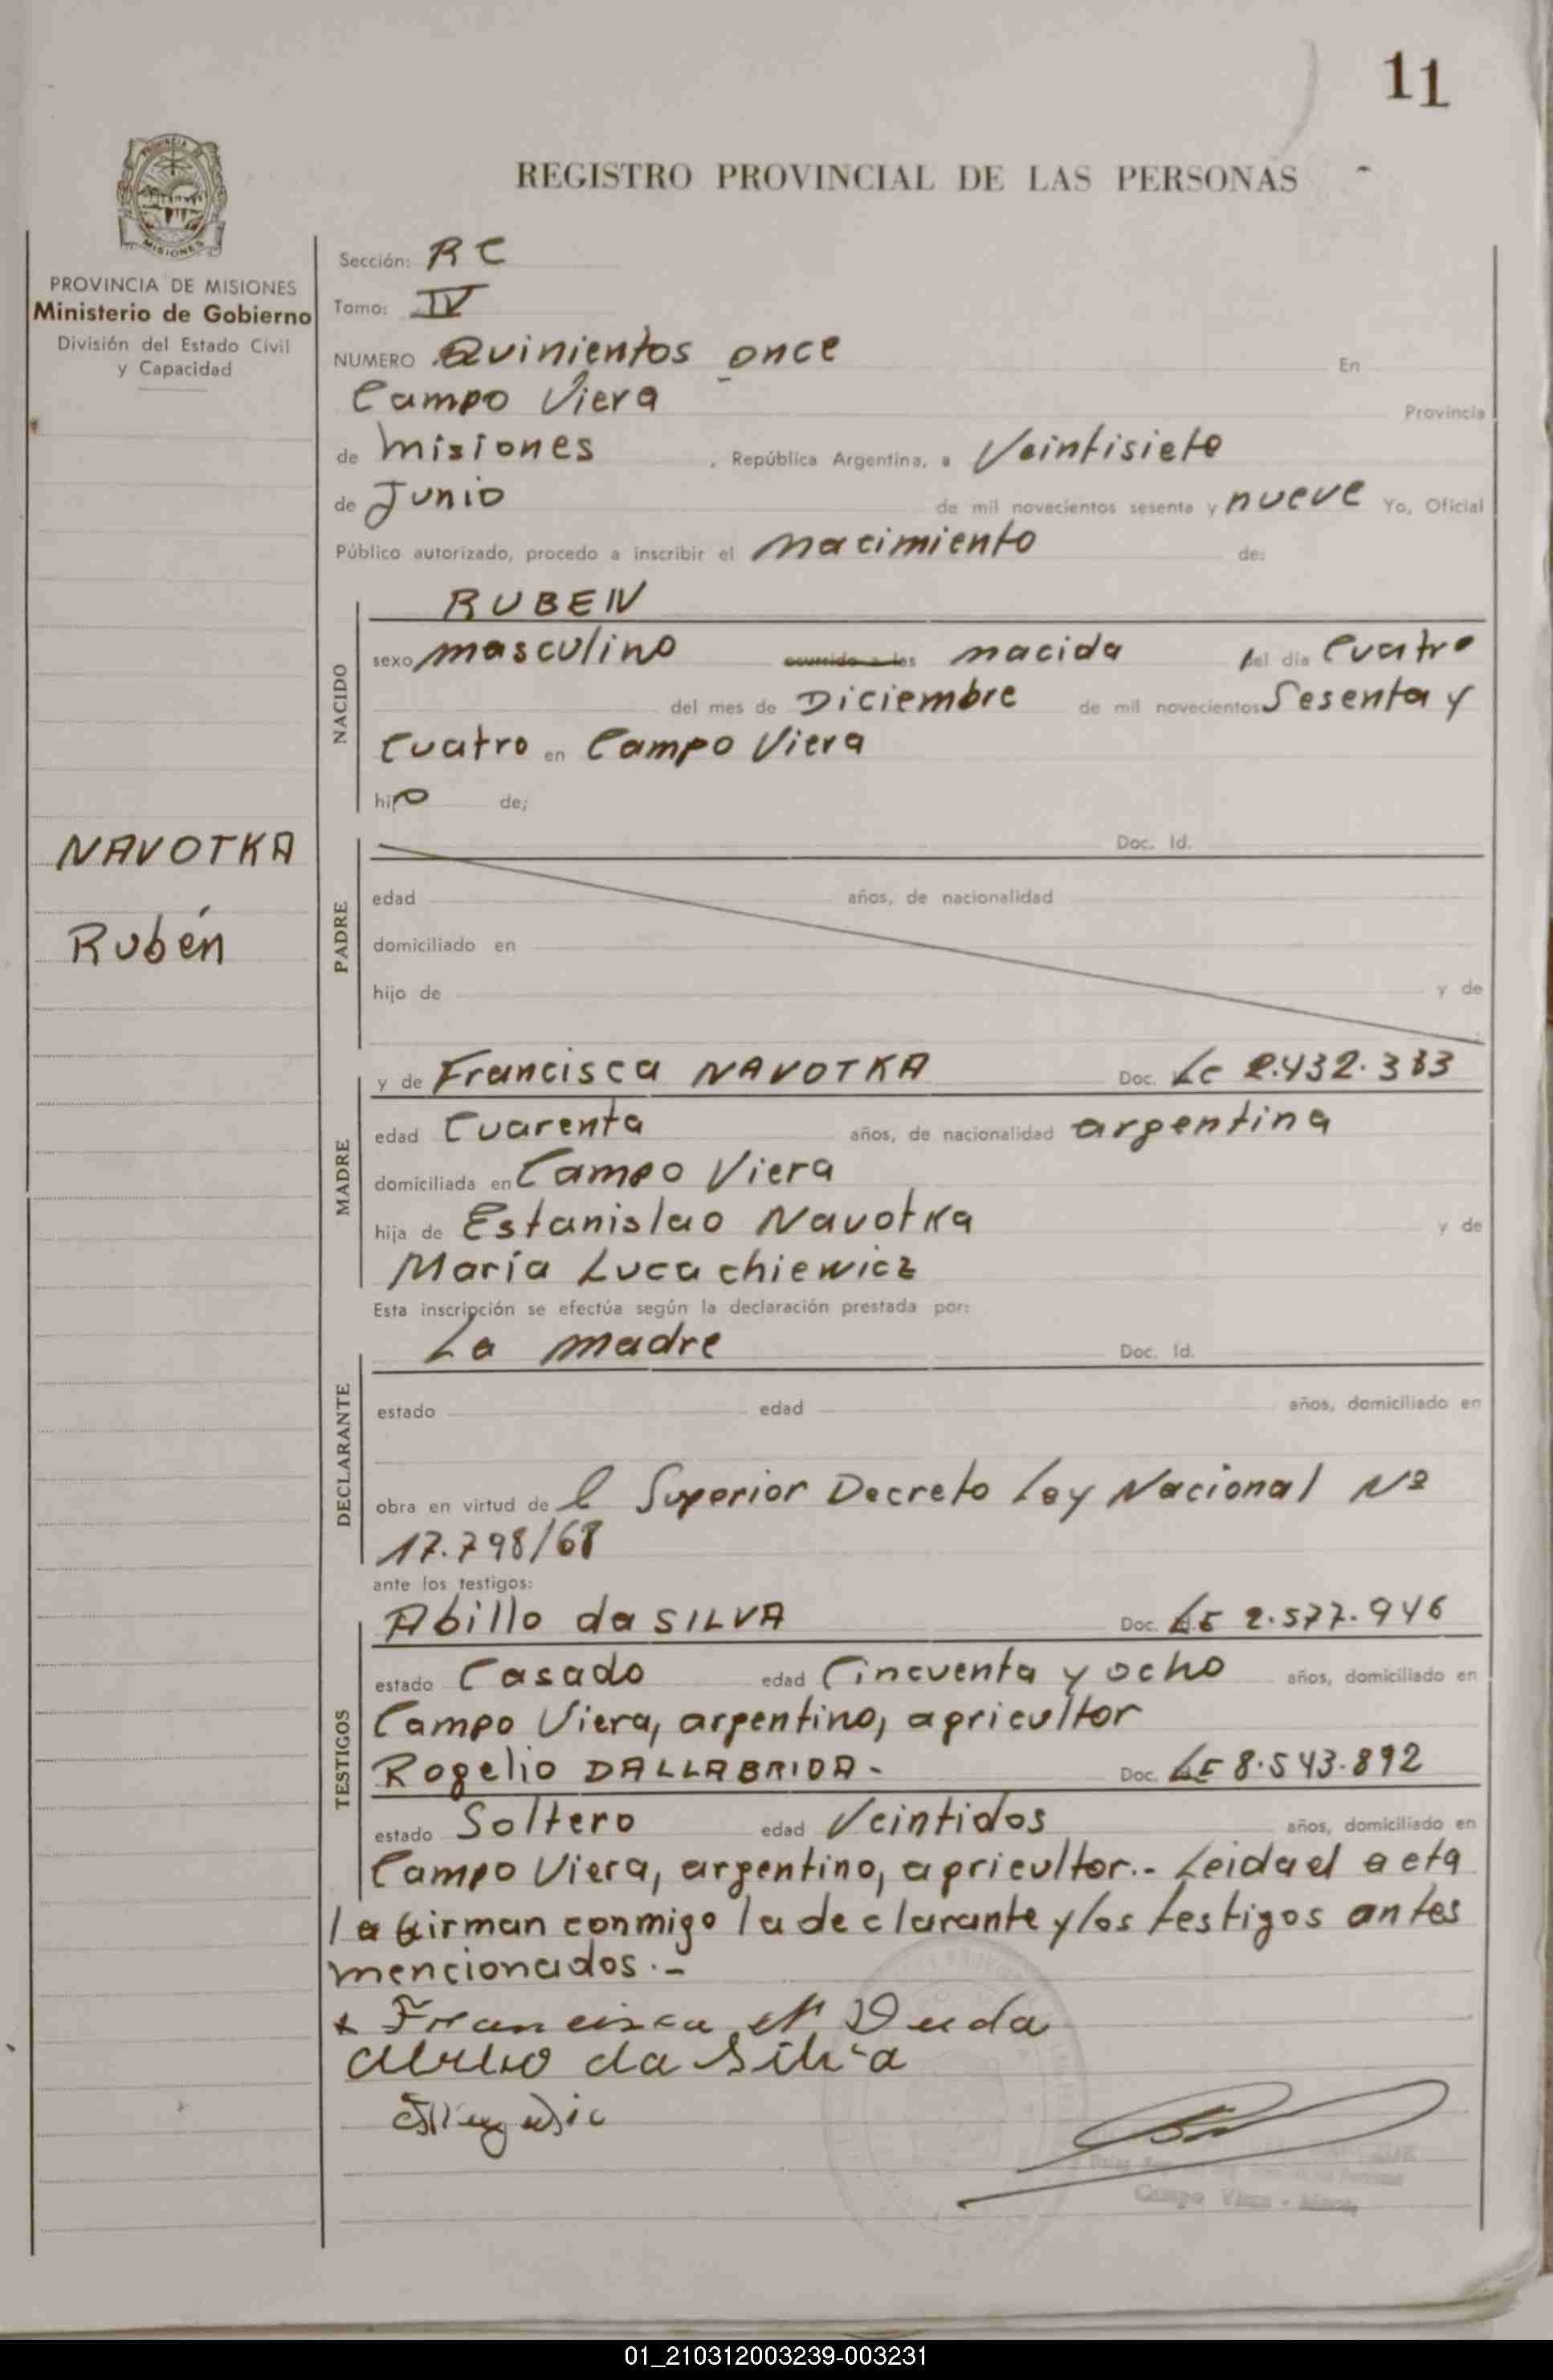 11
REGISTRO PROVINCIAL DE LAS PERSONAS
PROVINCIA DE MISIONES
Ministerio de Gobierno
División del Estado Civil
y Capacidad
NAVOTKA
Rubén
Sección: RC
Tomo: IV
NUMERO Quinientos once En
Campo Viera Provincia
de misiones , República Argentina, a Veintisiete
de Junio de mil novecientos sesenta y nueve Yo, Oficial
Público autorizado, procedo a inscribir el nacimiento de:
NACIDO
RUBEN
sexo masculino ocurrido a las nacida del día Cuatro
del mes de Diciembre de mil novecientos Sesenta y
Cuatro en Campo Viera
hijo de;
PADRE
Doc. Id.
edad años, de nacionalidad
domiciliado en
hijo de y de
MADRE
y de Francisca NAVOTKA Doc. LC 2.432.333
edad Cuarenta años, de nacionalidad argentina
domiciliada en Campo Viera
hija de Estanislao Navotka y de
María Lucachiewicz
Esta inscripción se efectúa según la declaración prestada por:
DECLARANTE
La madre Doc. Id.
estado edad años, domiciliado en
obra en virtud de l Superior Decreto Ley Nacional Nº
17.798/68
ante los testigos:
TESTIGOS
Abillo da SILVA Doc. LE 2.577.946
estado Casado edad Cincuenta y ocho años, domiciliado en
Campo Viera, argentino, agricultor
Rogelio DALLABRIDA.- Doc. LE 8.543.892
estado Soltero edad Veintidos años, domiciliado en
Campo Viera, argentino, agricultor.- Leida el acta
la firman conmigo la declarante y los testigos antes
mencionados.-
Francisca N Duda
da Silva
Campo Viera - Mnes.
01_210312003239-003231